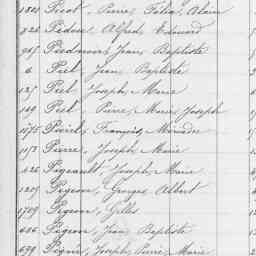 1801 Picot, Pierre, Félix, Alain
826 Pedeux, Alfred, Edouard
947 Piedevaux, Jean, Baptiste
6 Piel, Jean, Baptiste
127 Piel, Joseph, Marie
149 Piel, Pierre, Marie, Joseph
1875 Pierck, François, Mériadec
1152 Pierre, Joseph, Marie
626 Pigeault, Joseph, Marie
1209 Pigeon, Georges, Albert
1709 Pigeon, Gilles
686 Pigeon, Jean, Baptiste
699 Pignée, Joseph, Pierre, Marie